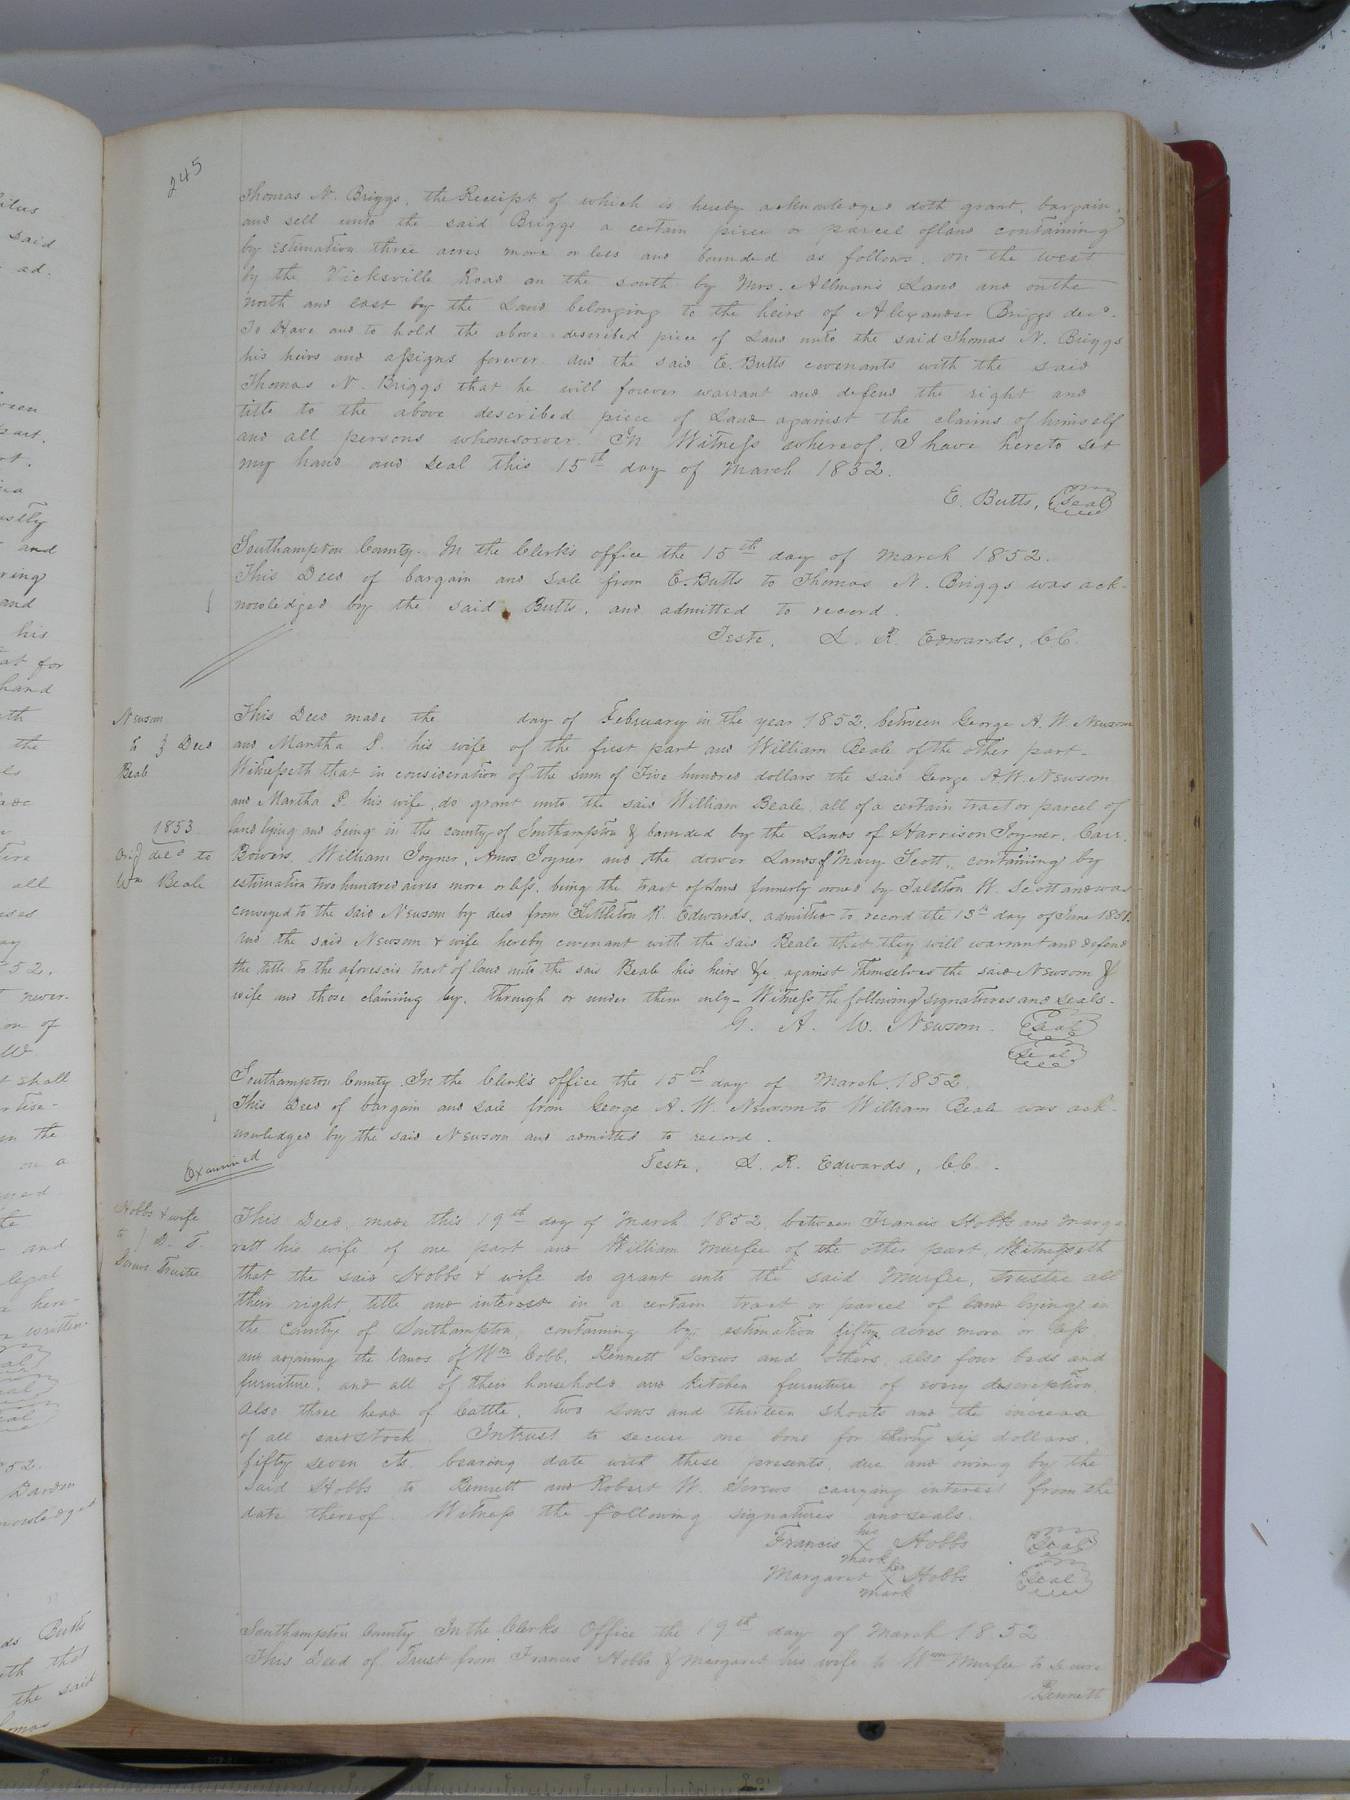 245
Thomas N. Briggs, the Receipt of which is hereby acknowledged doth grant, bargain,
and sell unto the said Briggs a certain piece or parcel of land containing
by estimation three acres more or less and bounded as follows. on the west
by the Vicksville Road on the south by Mrs. Allmans Land and on the
north and east by the Land belonging to the heirs of Alexander Briggs decd.
To Have and to hold the above described piece of Land unto the said Thomas N. Briggs
his heirs and assigns forever and the said E. Butts covenants with the said
Thomas N. Briggs that he will forever warrant and defend the right and
title to the above described piece of Land against the claims of himself
and all persons whomsoever. In Witness whereof, I have hereto set
my hand and seal this 15th day of March 1852.
E. Butts, Seal
Southampton County. In the Clerk's office the 15th day of March 1852.
This Deed of bargain and sale from E. Butts to Thomas N. Briggs was ack-
nowledged by the said Butts, and admitted to record.
Teste, L. R. Edwards, C.C.
Newsom
to } Deed
Beale
1853
decd to
Wm Beale
This Deed made the day of February in the year 1852, between George A. W. Newsom
and Martha P. his wife of the first part and William Beale of the other part-
Witnesseth that in consideration of the sum of Five hundred dollars the said George A. W. Newsom
and Martha P. his wife, do grant unto the said William Beale, all of a certain tract or parcel of
land lying and being in the county of Southampton & bounded by the Lands of Harrison Joyner, Carr
Bowers, William Joyner, Amos Joyner and the dower Lands of Mary Scott, containing by
estimation two hundred acres more or less, being the tract of Land formerly owned by W. Scott and was
conveyed to the said Newsom by deed from Littleton R. Edwards, admitted to record the day of June 1851.
And the said Newsom & wife hereby covenant with the said Beale that they will warrant and defend
the title to the aforesaid tract of land unto the said Beale his heirs &c against themselves the said Newsom &
wife and those claiming by, through or under them only- Witness the following signatures and seals-
G. A. W. Newsom. Seal
Seal
Southampton County. In the Clerk's office the 15th day of March, 1852.
This Deed of bargain and sale from George A. W. Newsom to William Beale was ack-
nowledged by the said Newsom and admitted to record.
Teste, L. R. Edwards, C.C.
Examined
Hobbs & wife
to } D. T.
Trustee
This Deed, made this 19th day of March 1852, between Francis Hobbs and Marga-
rett his wife of one part and William Murfee of the other part, Witnesseth
that the said Hobbs & wife do grant unto the said Murfee, trustee all
their right, title and interest in a certain tract or parcel of land lying in
the County of Southampton, containing by estimation fifty acres more or less
and adjoining the lands of Wm Cobb, Bennett Screws and others, also four beds and
furniture, and all of their household and kitchen furniture of every description,
Also three head of Cattle, two sows and thirteen shoats and the increase
of all said stock. In trust to secure one bond for thirty six dollars,
fifty seven cts. bearing date with these presents, due and owing by the
said Hobbs to Bennett and Robert W. Screws carrying interest from the
date thereof. Witness the following signatures and seals.
Francis his X mark Hobbs Seal
Margaret her X mark Hobbs Seal
Southampton County In the Clerks Office the 19th day of March 1852
This Deed of Trust from Francis Hobbs & Margaret his wife to Wm Murfee to secure
Bennett